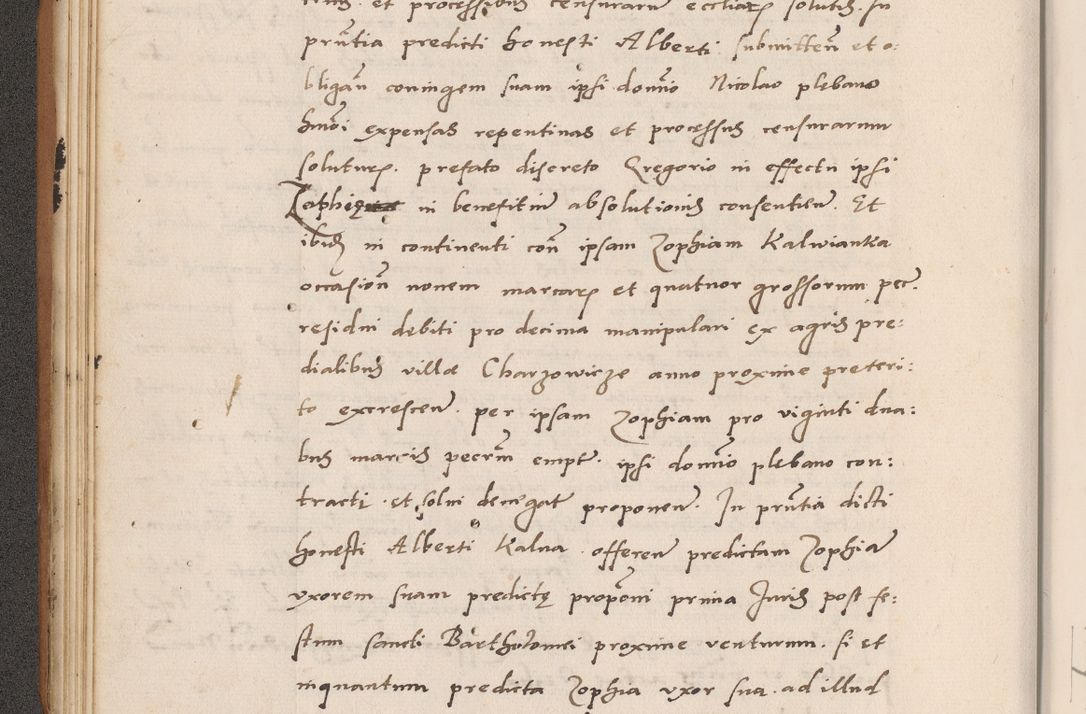 et processibus censurarum eccliar solutis. In
prntia predicti honesti Alberti submitten et o:
bligan coniugem suam ipsi domio Nicolao plebano
hmoi expensas repentinas et processus censurarum
soluturs. prefato discreto Gregorio in effectu ipsi
Zophię in benefitiu absolutionis consentien. Et
ibid in continenti con ipsam Zophiam Kalwianka
occasion nonem marcar et quatuor grossorum pec.
residui debiti pro decima manipulari ex agris pre:
dialibus villæ Charzowicze anno proxime preteri:
to excrescen. per ipsam Zophiam pro viginti dua:
bus marcis pecrum empt. ipsi domio plebano con:
tracti. et solui denegat proponen. In prntia dicti
honesti Alberti Kalna. offeren predictam Zophia
vxorem suam predictę propōni prima Juris post fe:
stum sancti Bartholomei proxime venturum. si et
inquantum predicta Zophia vxor sua. ad illud